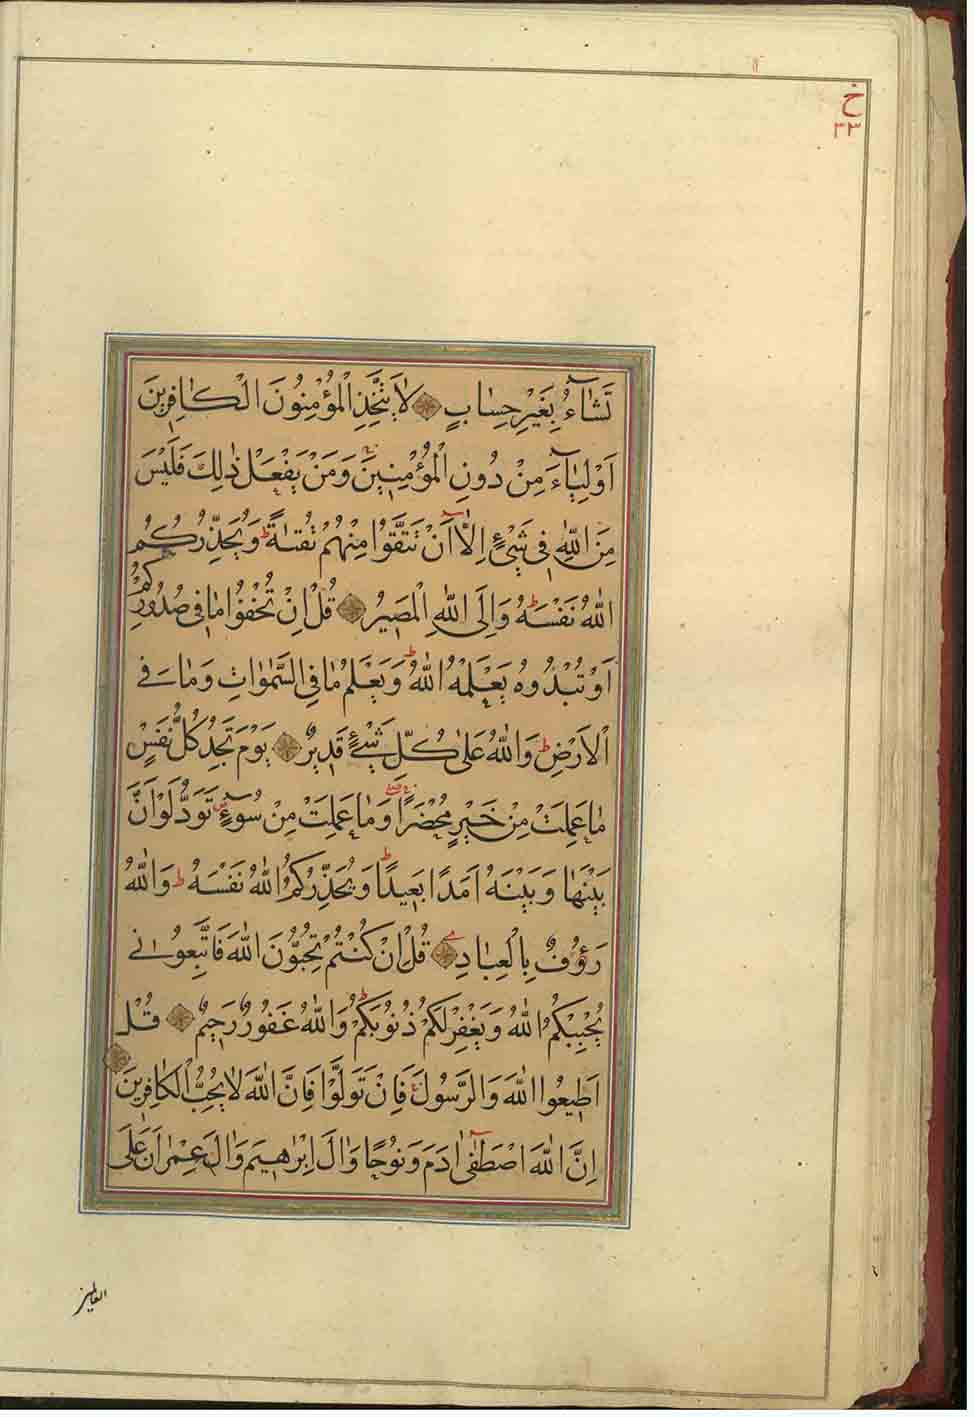 خ
٣٣
تَشَاۤءُ بِغَيْرِ حِسَابٍ لَا يَتَّخِذِ الْمُؤْمِنُونَ الْكَافِرِينَ
اَوْلِيَاۤءَ مِنْ دُونِ الْمُؤْمِنِينَ وَمَنْ يَفْعَلْ ذٰلِكَ فَلَيْسَ
مِنَ اللّٰهِ فِي شَيْءٍ اِلَّاۤ اَنْ تَتَّقُوا مِنْهُمْ تُقٰيةً ط وَيُحَذِّرُكُمُ
اللّٰهُ نَفْسَهُ ط وَاِلَى اللّٰهِ الْمَصِيرُ قُلْ اِنْ تُخْفُوا مَا فِي صُدُورِكُمْ
اَوْ تُبْدُوهُ يَعْلَمْهُ اللّٰهُ ط وَيَعْلَمُ مَا فِي السَّمٰوَاتِ وَمَا فِي
الْاَرْضِ ط وَاللّٰهُ عَلٰى كُلِّ شَيْءٍ قَدِيرٌ يَوْمَ تَجِدُ كُلُّ نَفْسٍ
مَا عَمِلَتْ مِنْ خَيْرٍ مُحْضَرًا وَمَا عَمِلَتْ مِنْ سُوۤءٍ تَوَدُّ لَوْ اَنَّ
بَيْنَهَا وَبَيْنَهُ اَمَدًا بَعِيدًا ط وَيُحَذِّرُكُمُ اللّٰهُ نَفْسَهُ ط وَاللّٰهُ
رَؤُفٌ بِالْعِبَادِ قُلْ اِنْ كُنْتُمْ تُحِبُّونَ اللّٰهَ فَاتَّبِعُونِي
يُحْبِبْكُمُ اللّٰهُ وَيَغْفِرْ لَكُمْ ذُنُوبَكُمْ ط وَاللّٰهُ غَفُورٌ رَحِيمٌ قُلْ
اَطِيعُوا اللّٰهَ وَالرَّسُولَ فَاِنْ تَوَلَّوْا فَاِنَّ اللّٰهَ لَا يُحِبُّ الْكَافِرِينَ
اِنَّ اللّٰهَ اصْطَفٰىۤ اٰدَمَ وَنُوحًا وَاٰلَ اِبْرٰهِيمَ وَاٰلَ عِمْرَانَ عَلَى
العالمين